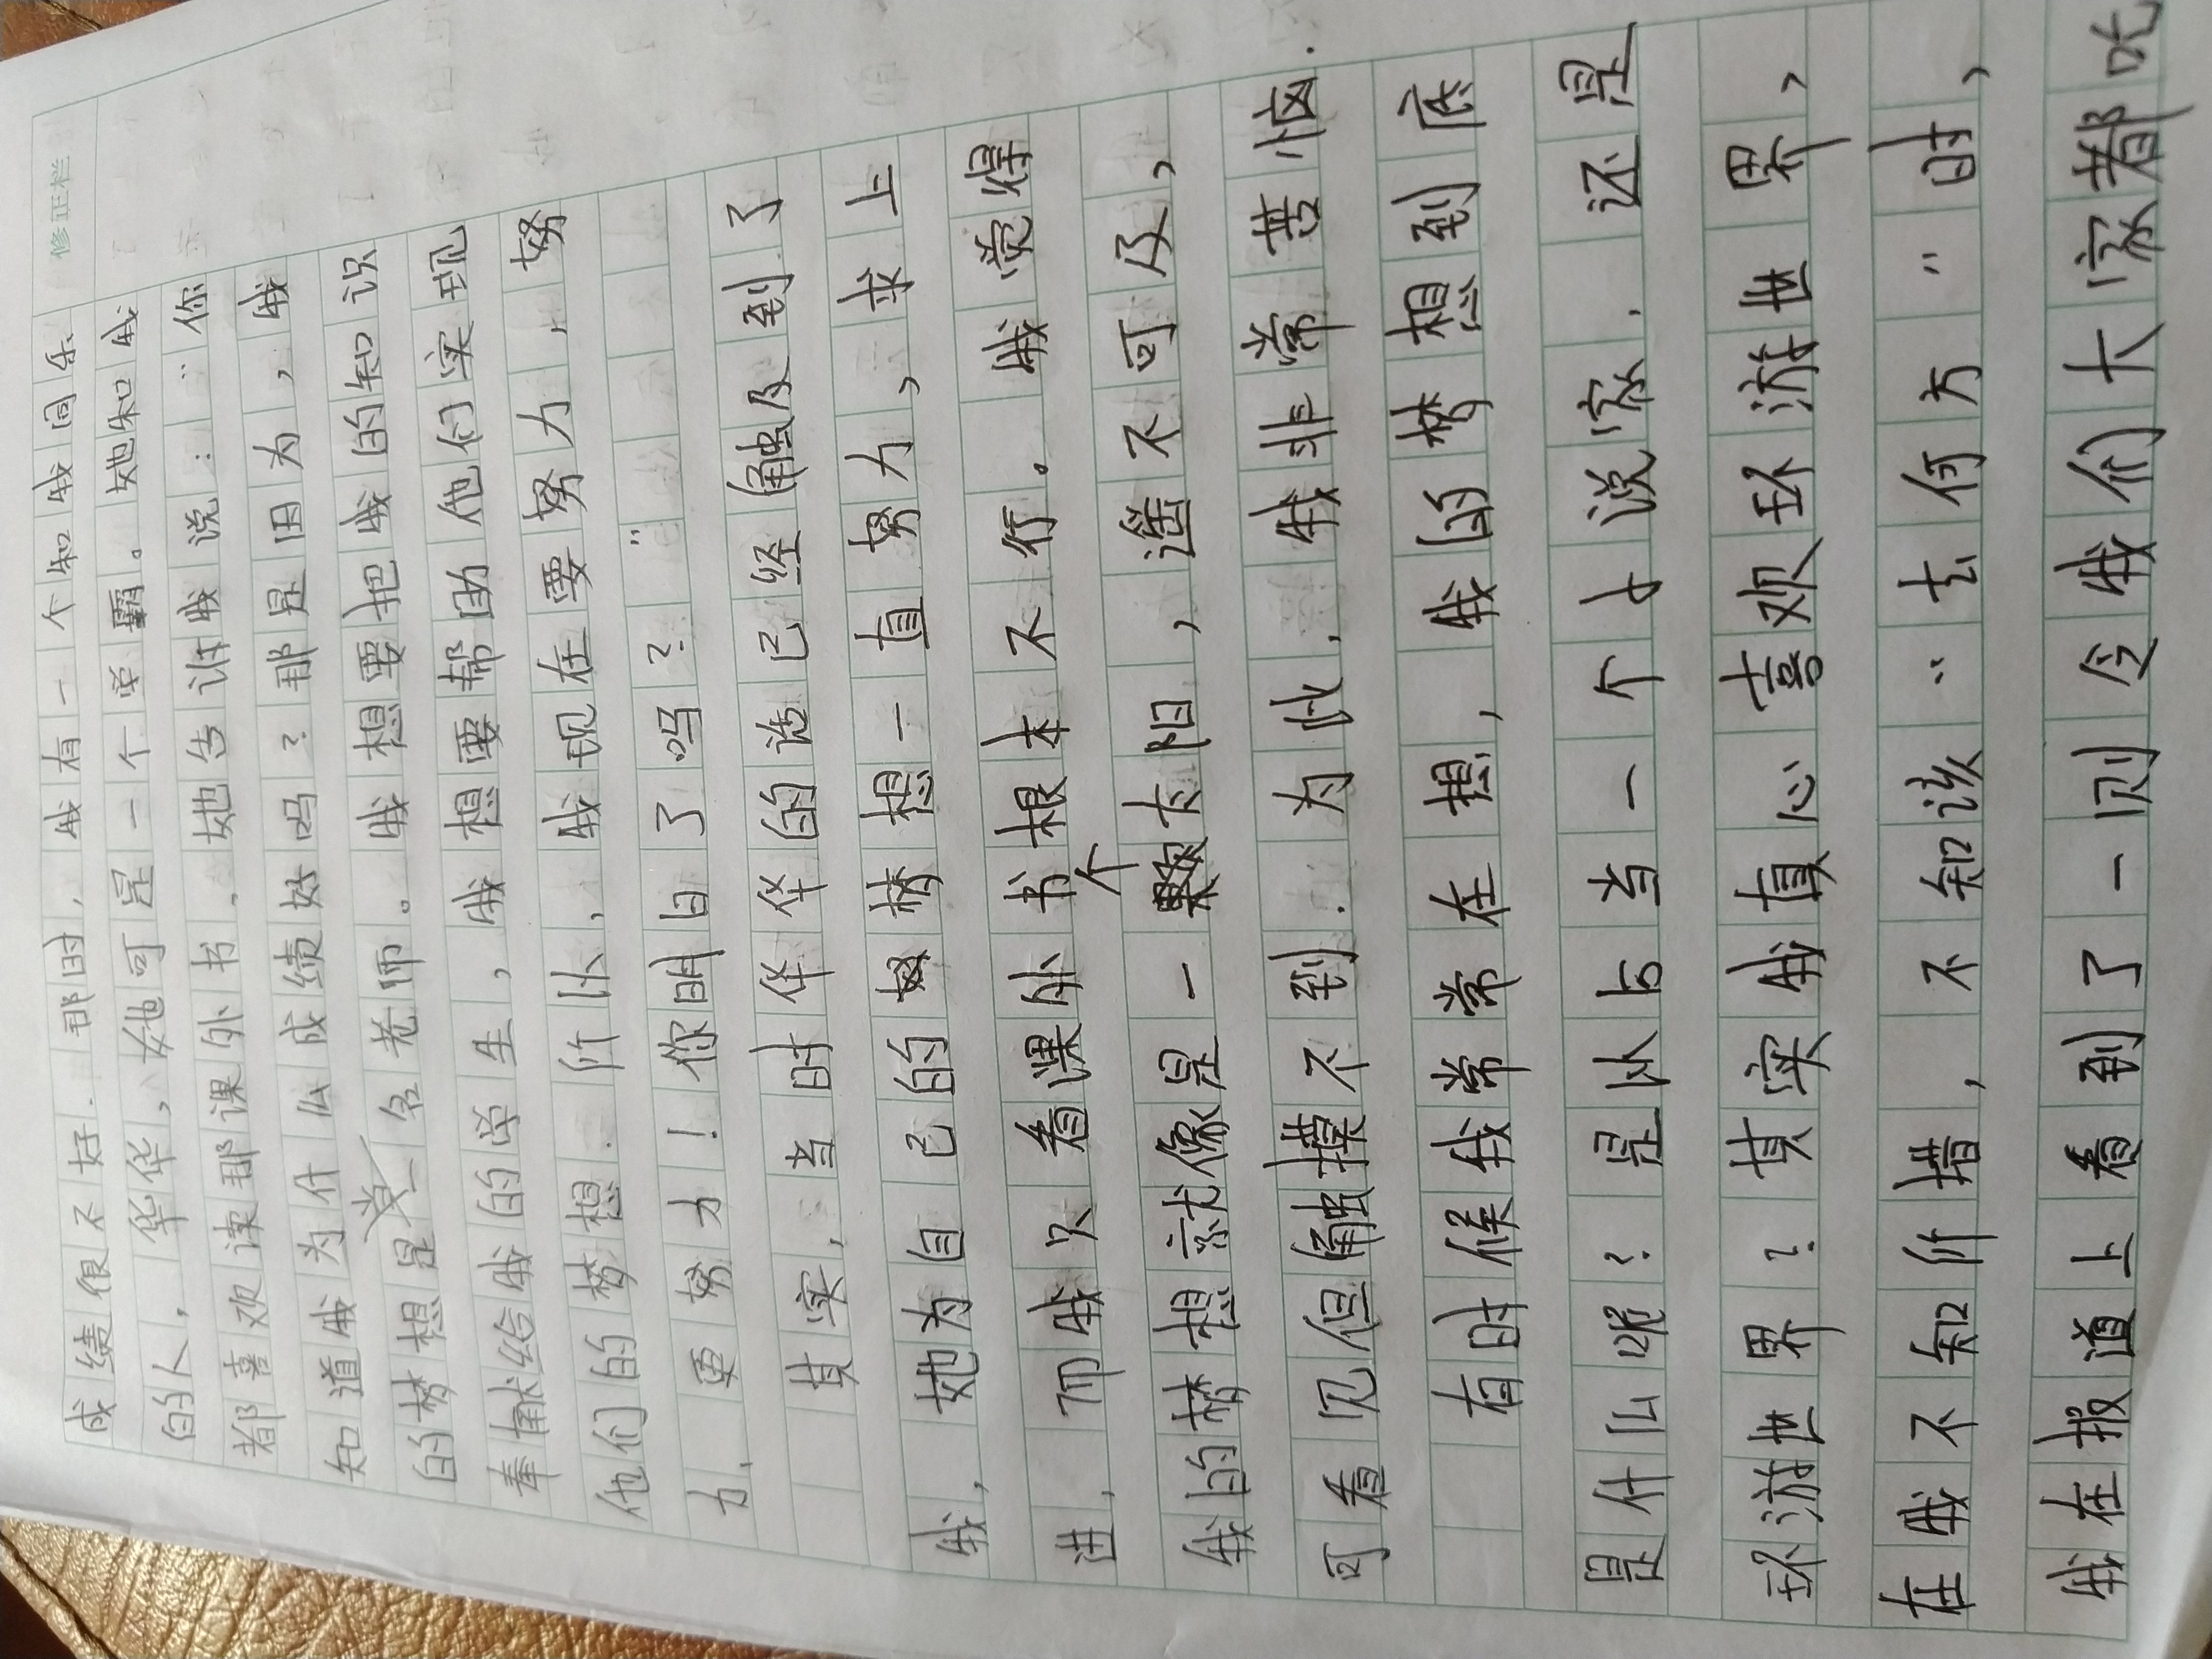 修正栏
成绩很不好.那时,我有一个和我同乐
的人,华华,她可是一个学霸。她和我
都喜欢读那课外书.她告诉我说:“你
知道我为什么成绩好吗?那是因为,我
的梦想是一名老师。我想要把我的知识
奉献给我的学生,我想要帮助他们实现
他们的梦想.所以,我现在要努力,努
力,更努力!你明白了吗?”
其实,当时华华的话已经触及到了
我,她为自己的梦想一直努力,求上
进,而我只看课外书根本不行。我觉得
我的梦想就像是一个太阳,遥不可及,
可看见但触摸不到.为此.我非常苦恼.
有时候我常常在想,我的梦想到底
是什么呢?是从古当一个小说家.还是
环游世界?其实我真心喜欢环游世界,
在我不知所措,不知该“去何方”时,
我在报道上看到了一则令我们大家都吃